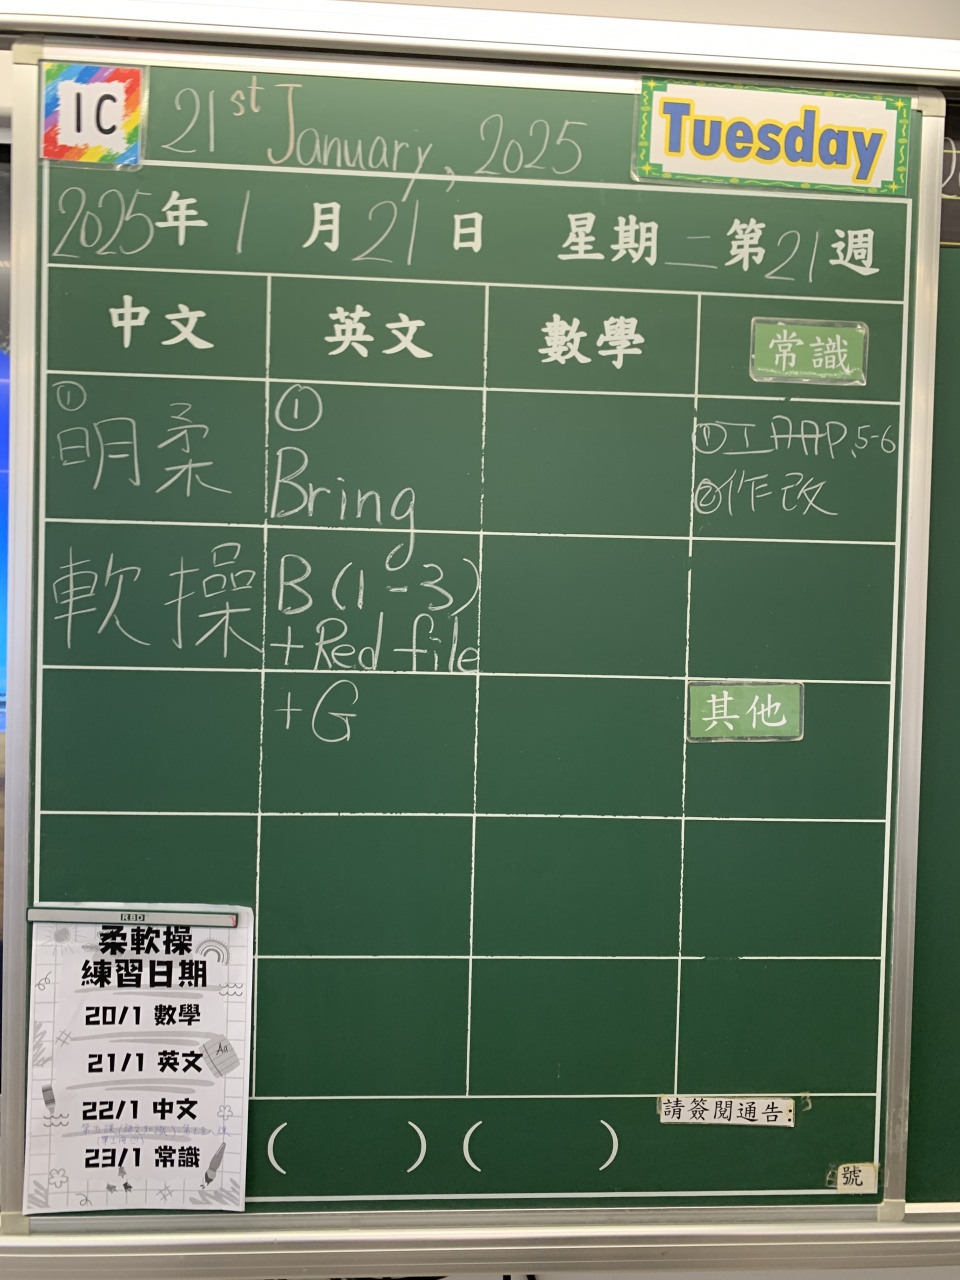 1C
21st January, 2025
Tuesday
2025年1月21日 星期二 第21週
中文 英文 數學 常識
① 明柔
軟操
①
Bring
B (1-3)
+Red file
+G
①工AAP.5-6
②作改
其他
RBD
柔軟操
練習日期
20/1 數學
21/1 英文
Aa
22/1 中文
23/1 常識
請簽閱通告:
( ) ( )
號